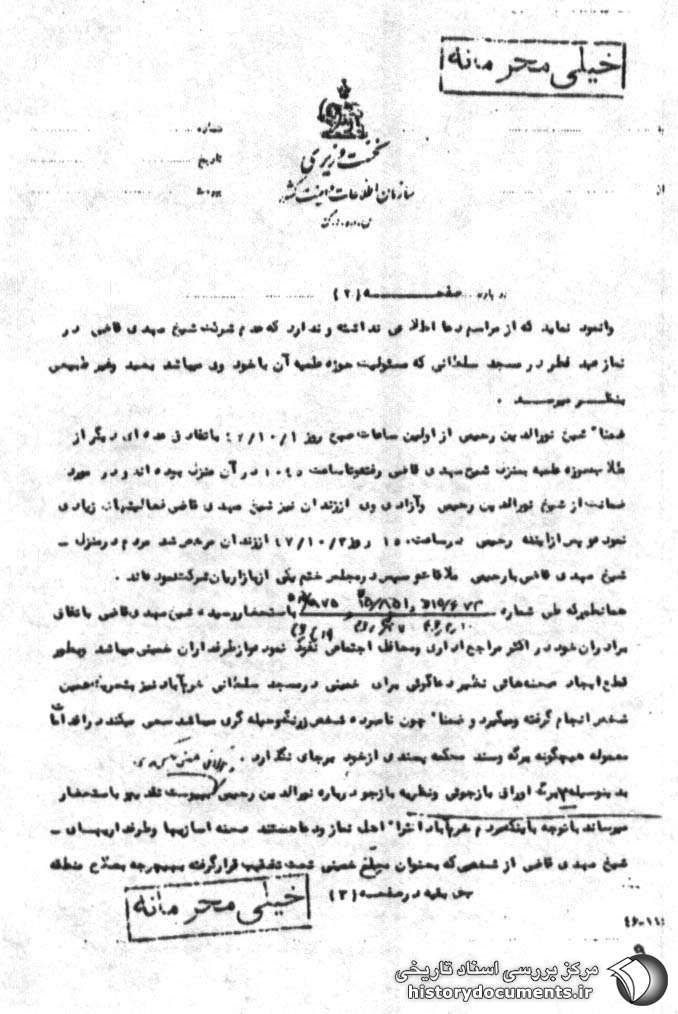 خیلی محرمانه
نخست وزیری
سازمان اطلاعات و امنیت کشور
شماره
تاریخ
پیوست
از
درباره صفحه (۲)
وانمود نماید که از مراسم دعا اطلاعی نداشته و ندارد که عدم شرکت شیخ مهدی قاضی در
نماز عید فطر در مسجد سلطانی که مسئولیت حوزه علمیه آن باخود وی میباشد بعید وغیر طبیعی
بنظر میرسد .
ضمنا" شیخ نورالدین رحیمی از اولین ساعات صبح روز ۴۷/۱۰/۱ باتفاق عده ای دیگر از
طلاب حوزه علمیه بمنزل شیخ مهدی قاضی رفته وتاساعت ۱۰۴۵ در آن منزل بوده اند و در مورد
ضمانت از شیخ نورالدین رحیمی وآزادی وی اززندان نیز شیخ مهدی قاضی فعالیتهای زیادی
نموده و پس ازاینکه رحیمی درساعت ۱۵۰۰ روز ۴۷/۱۰/۲ اززندان مرخص شد مردم درمنزل ـ
شیخ مهدی قاضی بارحیمی ملاقات و سپس درمجلس ختم یکی ازبازاریان شرکت نموده اند .
همانطوریکه طی شماره باستحضار رسیده شیخ مهدی قاضی باتفاق
برادران خود در اکثر مراجع اداری ومحافل اجتماعی نفوذ نموده وازطرفداران خمینی میباشد وبطور
قطع ایجاد صحنه هائی نظیر دعاگوئی برای خمینی درمسجد سلطانی خرم آباد نیز بتحریک همین
شخص انجام گرفته ومیگیرد و ضمنا" چون نامبرده شخص زرنگ وحیله گری میباشد سعی میکند در اقدامات
معموله هیچگونه برگه وسند محکمه پسندی ازخود برجای نگذارد .
بدینوسیله برگ اوراق بازجوئی ونظریه بازجو درباره نورالدین رحیمی بپیوست تقدیم باستحضار
میرساند باتوجه باینکه مردم خرم آباد اکثرا" اهل نماز ودعا هستند صحنه سازیها وطرفداریهای ـ
شیخ مهدی قاضی از شخصی که بعنوان مبلغ خمینی تحت تعقیب قرارگرفته بهیچوجه بصلاح منطقه
بقیه در صفحه (۳)
خیلی محرمانه
۹
مرکز بررسی اسناد تاریخی
historydocuments.ir